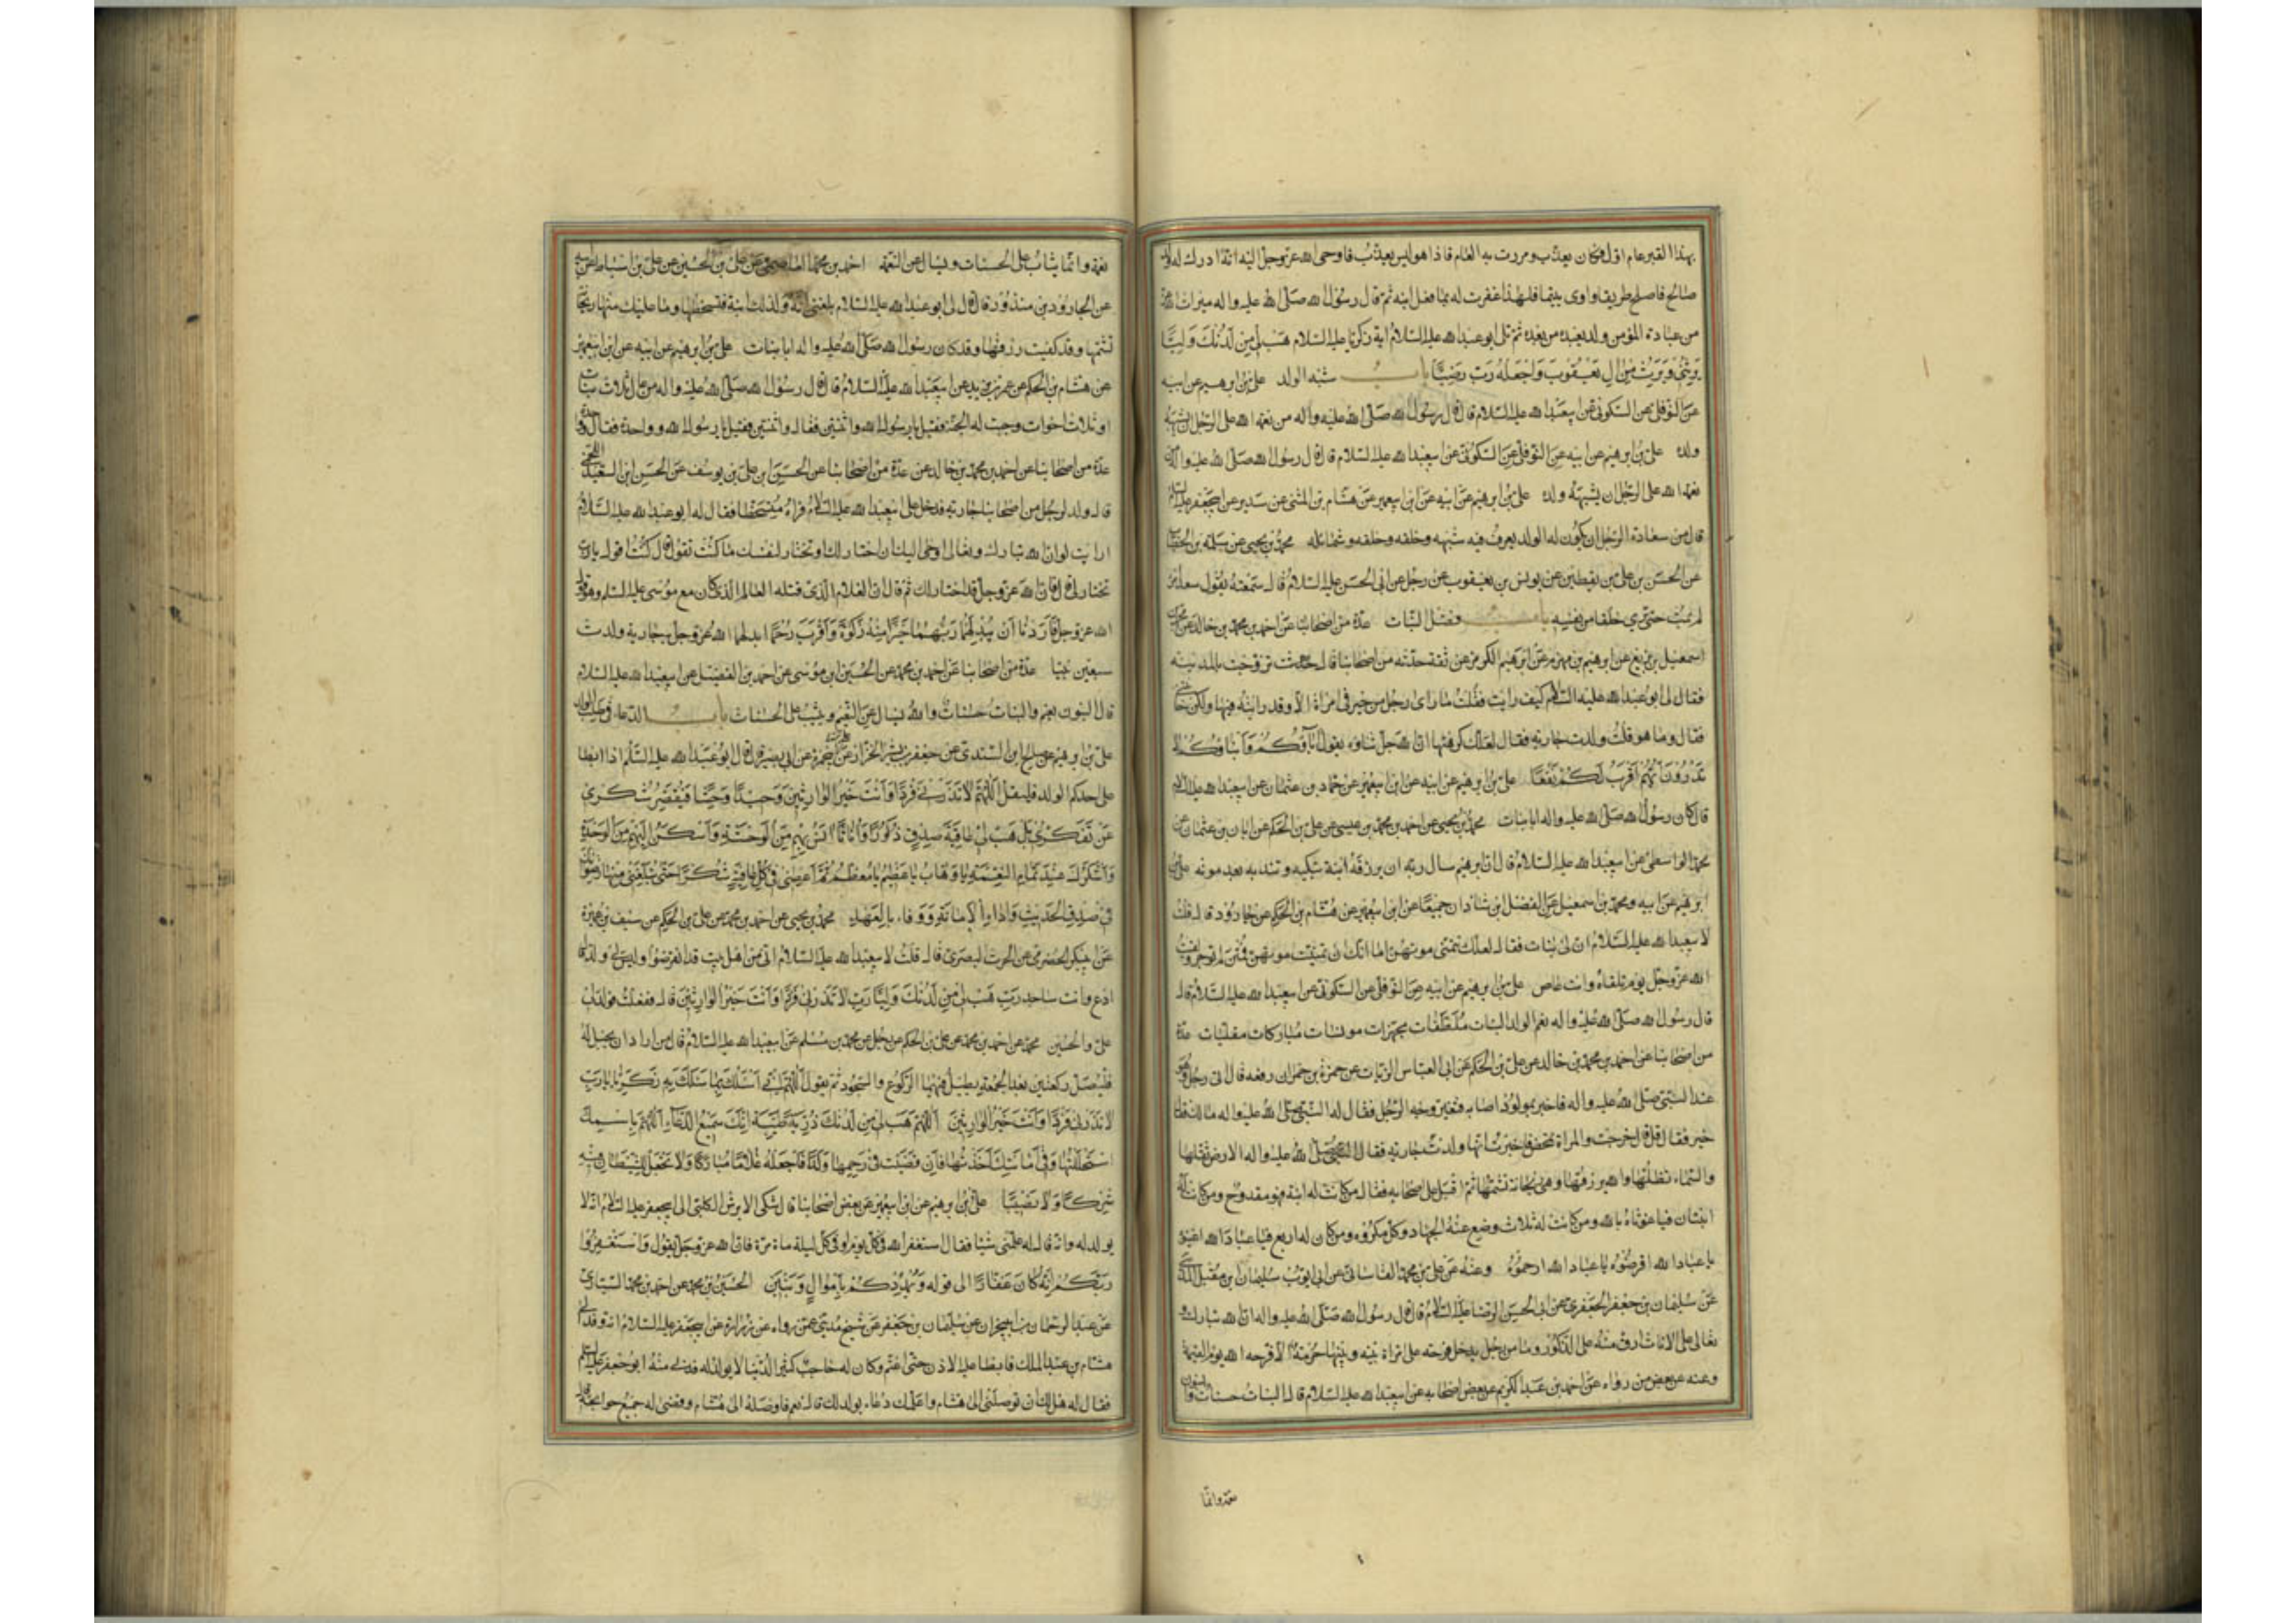 بهذا القبر عام اول فكان يعذب ومررت به العام فاذا هو ليس يعذب فاوحى الله عز وجل اليه انه ادرك له ولد
صالح فاصلح طريقا واوى يتيما فلهذا غفرت له بما فعل ابنه ثم قال رسول الله صلى الله عليه واله ميراث الله
من عباده المؤمن ولد يعبده من بعده ثم تلى ابو عبد الله عليه السلام اية زكريا عليه السلام هَب لي مِن لَدُنكَ وَليًّا
يَرِثُني وَيَرِثُ مِن الِ يَعقُوبَ وَاجعَلهُ رَبِّ رَضِيًّا باب شبه الولد علي بن ابرهيم عن ابيه
عن النوفلي عن السكوني عن ابي عبد الله عليه السلام قال قال رسول الله صلى الله عليه واله من نعمة الله على الرجل ان يشبهه
ولده علي بن ابرهيم عن ابيه عن النوفلي عن السكوني عن ابي عبد الله عليه السلام قال قال رسول الله صلى الله عليه واله من
نعمة الله على الرجل ان يشبهه ولده علي بن ابرهيم عن ابيه عن ابن ابي عمير عن هشام بن المثنى عن سدير عن ابي جعفر عليه السلام
قال من سعادة الرجل ان يكون له الولد يعرف فيه شبهه وخلقه وخلقه وشمائله محمد بن يحيى عن سلمة بن الخطاب
عن الحسن بن علي بن يقطين عن يونس بن يعقوب عن رجل عن ابي الحسن عليه السلام قال سمعته يقول سعد امرؤ
لم يمت حتى يرى خلفا من نفسه باب فضل البنات عدة من اصحابنا عن احمد بن محمد بن خالد عن محمد بن
اسمعيل بن بزيع عن ابرهيم بن مهزم عن ابرهيم الكرخي عن ثقة حدثه من اصحابنا قال تزوجت بالمدينة
فقال لي ابو عبد الله عليه السلام كيف رايت فقلت ما راى رجل من خير في امراة الا وقد رايته فيها ولكن خانتني
فقال وما هو قلت ولدت جارية فقال لعلك كرهتها ان الله جل ثناؤه يقول اباؤكم وابناؤكم لا
تدرون ايهم اقرب لكم نفعا علي بن ابرهيم عن ابيه عن ابن ابي عمير عن حماد بن عثمان عن ابي عبد الله عليه السلام
قال كان رسول الله صلى الله عليه واله ابا بنات محمد بن يحيى عن احمد بن محمد بن عيسى عن علي بن الحكم عن ابان بن عثمان عن
محمد الواسطي عن ابي عبد الله عليه السلام قال ان ابرهيم سال ربه ان يرزقه ابنة تبكيه وتندبه بعد موته علي بن
ابرهيم عن ابيه ومحمد بن اسمعيل عن الفضل بن شاذان جميعا عن ابن ابي عمير عن هشام بن الحكم عن جارود قال قلت
لابي عبد الله عليه السلام ان لي بنات فقال لعلك تتمنى موتهن اما انك ان تمنيت موتهن فمتن لم توجر ولقيت
الله عز وجل يوم تلقاه وانت عاص علي بن ابرهيم عن ابيه عن النوفلي عن السكوني عن ابي عبد الله عليه السلام قال
قال رسول الله صلى الله عليه واله نعم الولد البنات ملطفات مجهزات مونسات مباركات مفليات عدة
من اصحابنا عن احمد بن محمد بن خالد عن علي بن الحكم عن ابي العباس الزيات عن حمزة بن حمران رفعه قال اتى رجل وهو
عند النبي صلى الله عليه واله فاخبر بمولود اصابه فتغير وجه الرجل فقال له النبي صلى الله عليه واله مالك فقال
خير فقال قل قال خرجت والمراة تمخض فاخبرت انها ولدت جارية فقال النبي صلى الله عليه واله الارض تقلها
والسماء تظلها والله يرزقها وهي ريحانة تشمها ثم اقبل على اصحابه فقال من كانت له ابنة فهو مفدوح ومن كانت له
ابنتان فيا غوثاه بالله ومن كانت له ثلاث وضع عنه الجهاد وكل مكروه ومن كان له اربع فيا عباد الله اعينوه
يا عباد الله اقرضوه يا عباد الله ارحموه وعنه عن علي بن محمد القاساني عن ابي ايوب سليمان بن مقبل المديني
عن سليمان بن جعفر الجعفري عن ابي الحسن الرضا عليه السلام قال قال رسول الله صلى الله عليه واله ان الله تبارك و
تعالى على الاناث ارق منه على الذكور وما من رجل يدخل فرحة على امراة بينه وبينها حرمة الا فرحه الله يوم القيمة
وعنه عن بعض من رواه عن احمد بن عبد الكريم عن بعض اصحابه عن ابي عبد الله عليه السلام قال البنات حسنات والبنون
نعمة وانما
نعمة وانما يثاب على الحسنات ويسال عن النعمة احمد بن محمد العاصمي عن علي بن الحسين عن علي بن اسباط عن ابيه
عن الجارود بن منذر قال قال لي ابو عبد الله عليه السلام بلغني انه ولد لك ابنة فتسخطها وما عليك منها ريحانة
تشمها وقد كفيت رزقها وقد كان رسول الله صلى الله عليه واله ابا بنات علي بن ابرهيم عن ابيه عن ابن ابي عمير
عن هشام بن الحكم عن عمر بن يزيد عن ابي عبد الله عليه السلام قال قال رسول الله صلى الله عليه واله من عال ثلاث بنات
او ثلاث اخوات وجبت له الجنة فقيل يا رسول الله واثنتين فقال واثنتين فقيل يا رسول الله وواحدة فقال وواحدة
عدة من اصحابنا عن احمد بن محمد بن خالد عن عدة من اصحابنا عن الحسن بن علي بن يوسف عن الحسن بن السعيد اللخمي
قال ولد لرجل من اصحابنا جارية فدخل على ابي عبد الله عليه السلام فراه متسخطا فقال له ابو عبد الله عليه السلام
ارايت لو ان الله تبارك وتعالى اوحى اليك ان اختار لك او تختار لنفسك ما كنت تقول قال كنت اقول يا رب
تختار لي قال فان الله عز وجل قد اختار لك ثم قال ان الغلام الذي قتله العالم الذي كان مع موسى عليه السلم وهو قول
الله عز وجل فاردنا ان يبدلهما ربهما خيرا منه زكوة واقرب رحما ابدلهما الله عز وجل به جارية ولدت
سبعين نبيا عدة من اصحابنا عن احمد بن محمد عن الحسين بن موسى عن احمد بن الفضل عن ابي عبد الله عليه السلام
قال البنون نعيم والبنات حسنات والله يسال عن النعيم ويثيب على الحسنات باب الدعاء في طلب الولد
علي بن ابرهيم عن صالح بن السندي عن جعفر بن بشير الخزاز عن ابي بصير قال قال ابو عبد الله عليه السلم اذا ابطا
على احدكم الولد فليقل اللهم لا تذرني فردا وانت خير الوارثين وحيدا وحشا فيقصر شكري
عن تفكري بل هب لي عاقبة صدق ذكورا واناثا انس بهم من الوحشة واسكن اليهم من الوحدة
واشكرك عند تمام النعمة يا وهاب يا عظيم يا معظم ثم اعطني في كل عافية شكرا حتى تبلغني منها رضوانك
في صدق الحديث واداء الامانة ووفاء بالعهد محمد بن يحيى عن احمد بن محمد عن علي بن الحكم عن سيف بن عميرة
عن ابي بكر الحضرمي عن الحرث البصري قال قلت لابي عبد الله عليه السلام اني من اهل بيت قد انقرضوا وليس لي ولد قال
ادع وانت ساجد رب هب لي من لدنك وليا رب لا تذرني فردا وانت خير الوارثين قال ففعلت فولد لي
علي والحسين محمد عن احمد بن محمد عن علي بن الحكم عن رجل عن محمد بن مسلم عن ابي عبد الله عليه السلام قال من اراد ان يحبل له
فليصل ركعتين بعد الجمعة يطيل فيهما الركوع والسجود ثم يقول اللهم اني اسئلك بما سئلك به زكريا يا رب
لا تذرني فردا وانت خير الوارثين اللهم هب لي من لدنك ذرية طيبة انك سميع الدعاء اللهم باسمك
استحللتها وفي امانتك اخذتها فان قضيت في رحمها ولدا فاجعله غلاما مباركا ولا تجعل للشيطان فيه
شركا ولا نصيبا علي بن ابرهيم عن ابن ابي عمير عن بعض اصحابنا قال شكى الابرش الكلبي الى ابي جعفر عليه السلام انه لا
يولد له وانه قال له علمني شيئا فقال استغفر الله في كل يوم او في كل ليلة مائة مرة فان الله عز وجل يقول واستغفروا
ربكم انه كان غفارا الى قوله ويمددكم باموال وبنين الحسين بن محمد عن احمد بن محمد السياري
عن عبد الرحمان بن ابي نجران عن سليمان بن جعفر عن شيخ مديني عمن رواه عن زرارة عن ابي جعفر عليه السلام انه وفد الى
هشام بن عبد الملك فابطا عليه الاذن حتى اغتم وكان له حاجب كثير الدنيا لا يولد له فدنى منه ابو جعفر عليه السلم
فقال له هل لك ان توصلني الى هشام واعلمك دعاء يولد لك قال نعم فاوصله الى هشام وقضى له جميع حوائجه